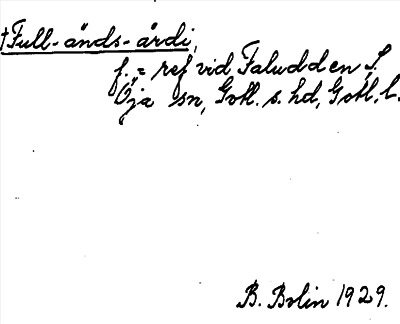 †Full-änds-årdi,
f. = ref vid Faludden S,
Öja sn, Gotl. s. hd, Gotl. l.
B. Bolin 1929.